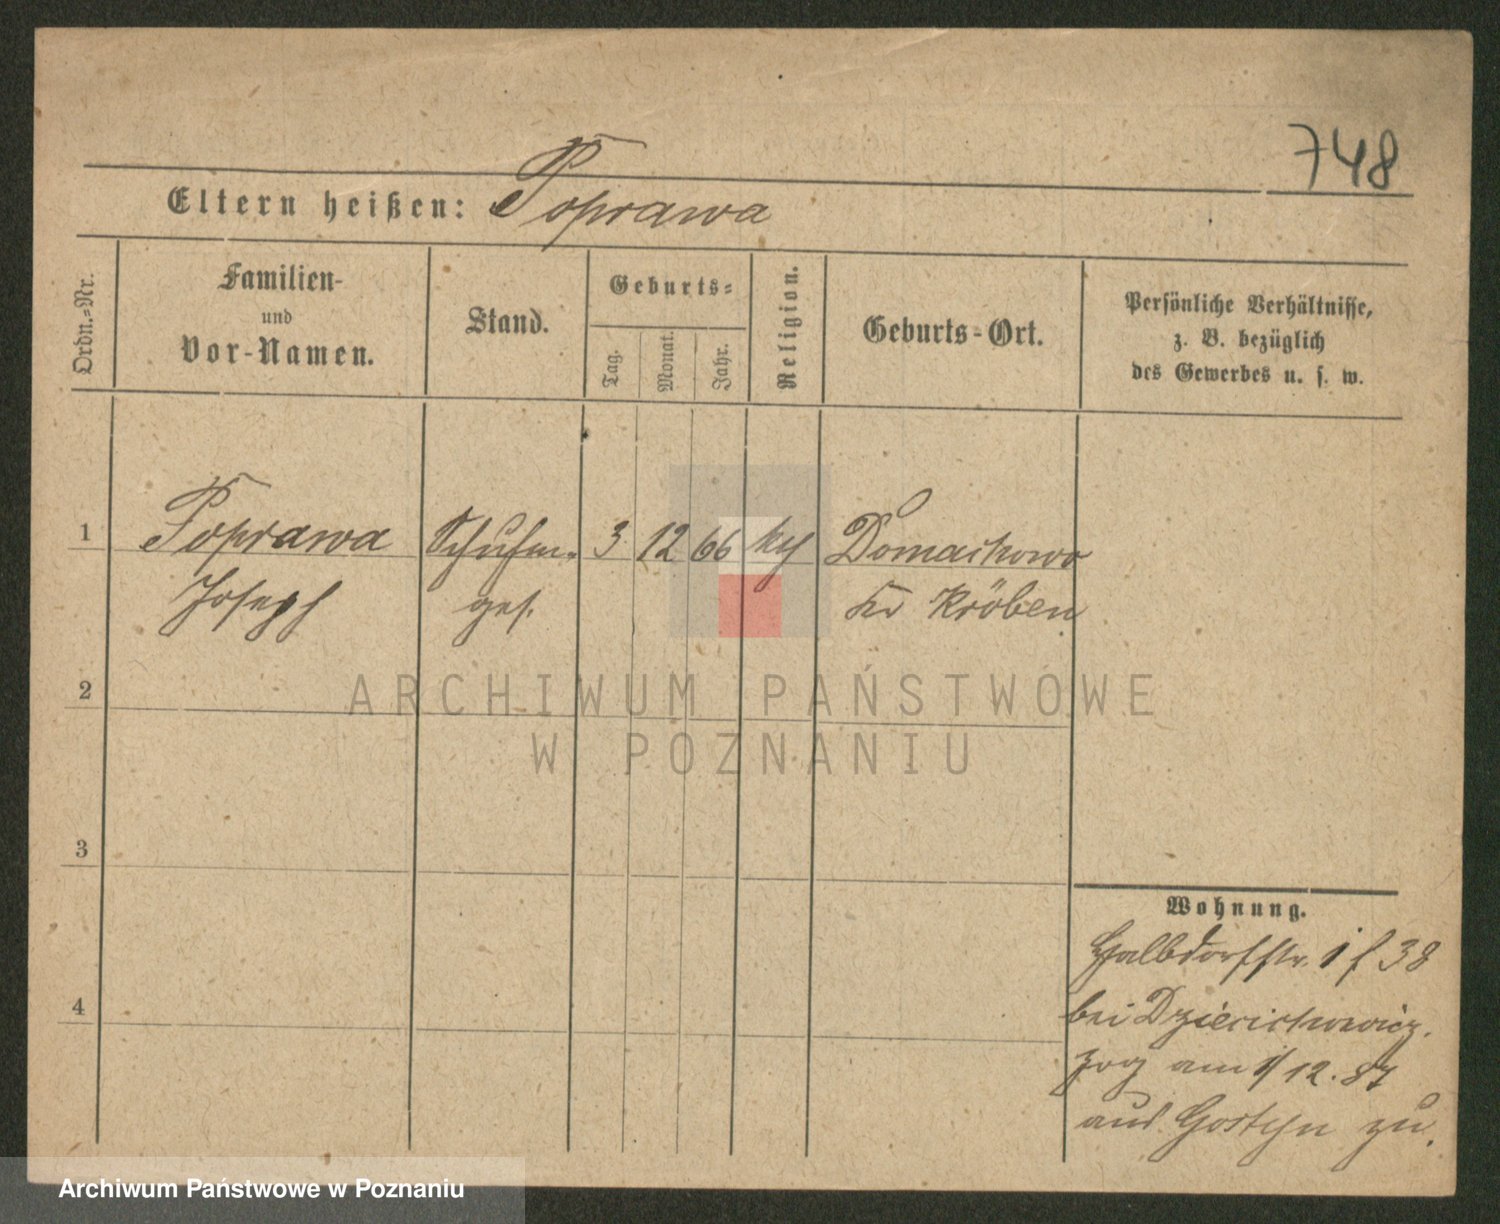 748
Eltern heißen: Poprawa
Ordn.-Nr.
Familien-
und
Vor-Namen.
Stand.
Geburts-
Tag.
Monat.
Jahr.
Religion.
Geburts-Ort.
Persönliche Verhältnisse,
z. B. bezüglich
des Gewerbes u. s. w.
1 Poprawa 3 12 66 Domachowo
Joseph ges. Kr Kröben
2
3
4
Wohnung.
Halbdorfstr. 38
bei
zog am 1/12.87
aus Gostyn zu.
ARCHIWUM PAŃSTWOWE
W POZNANIU
Archiwum Państwowe w Poznaniu